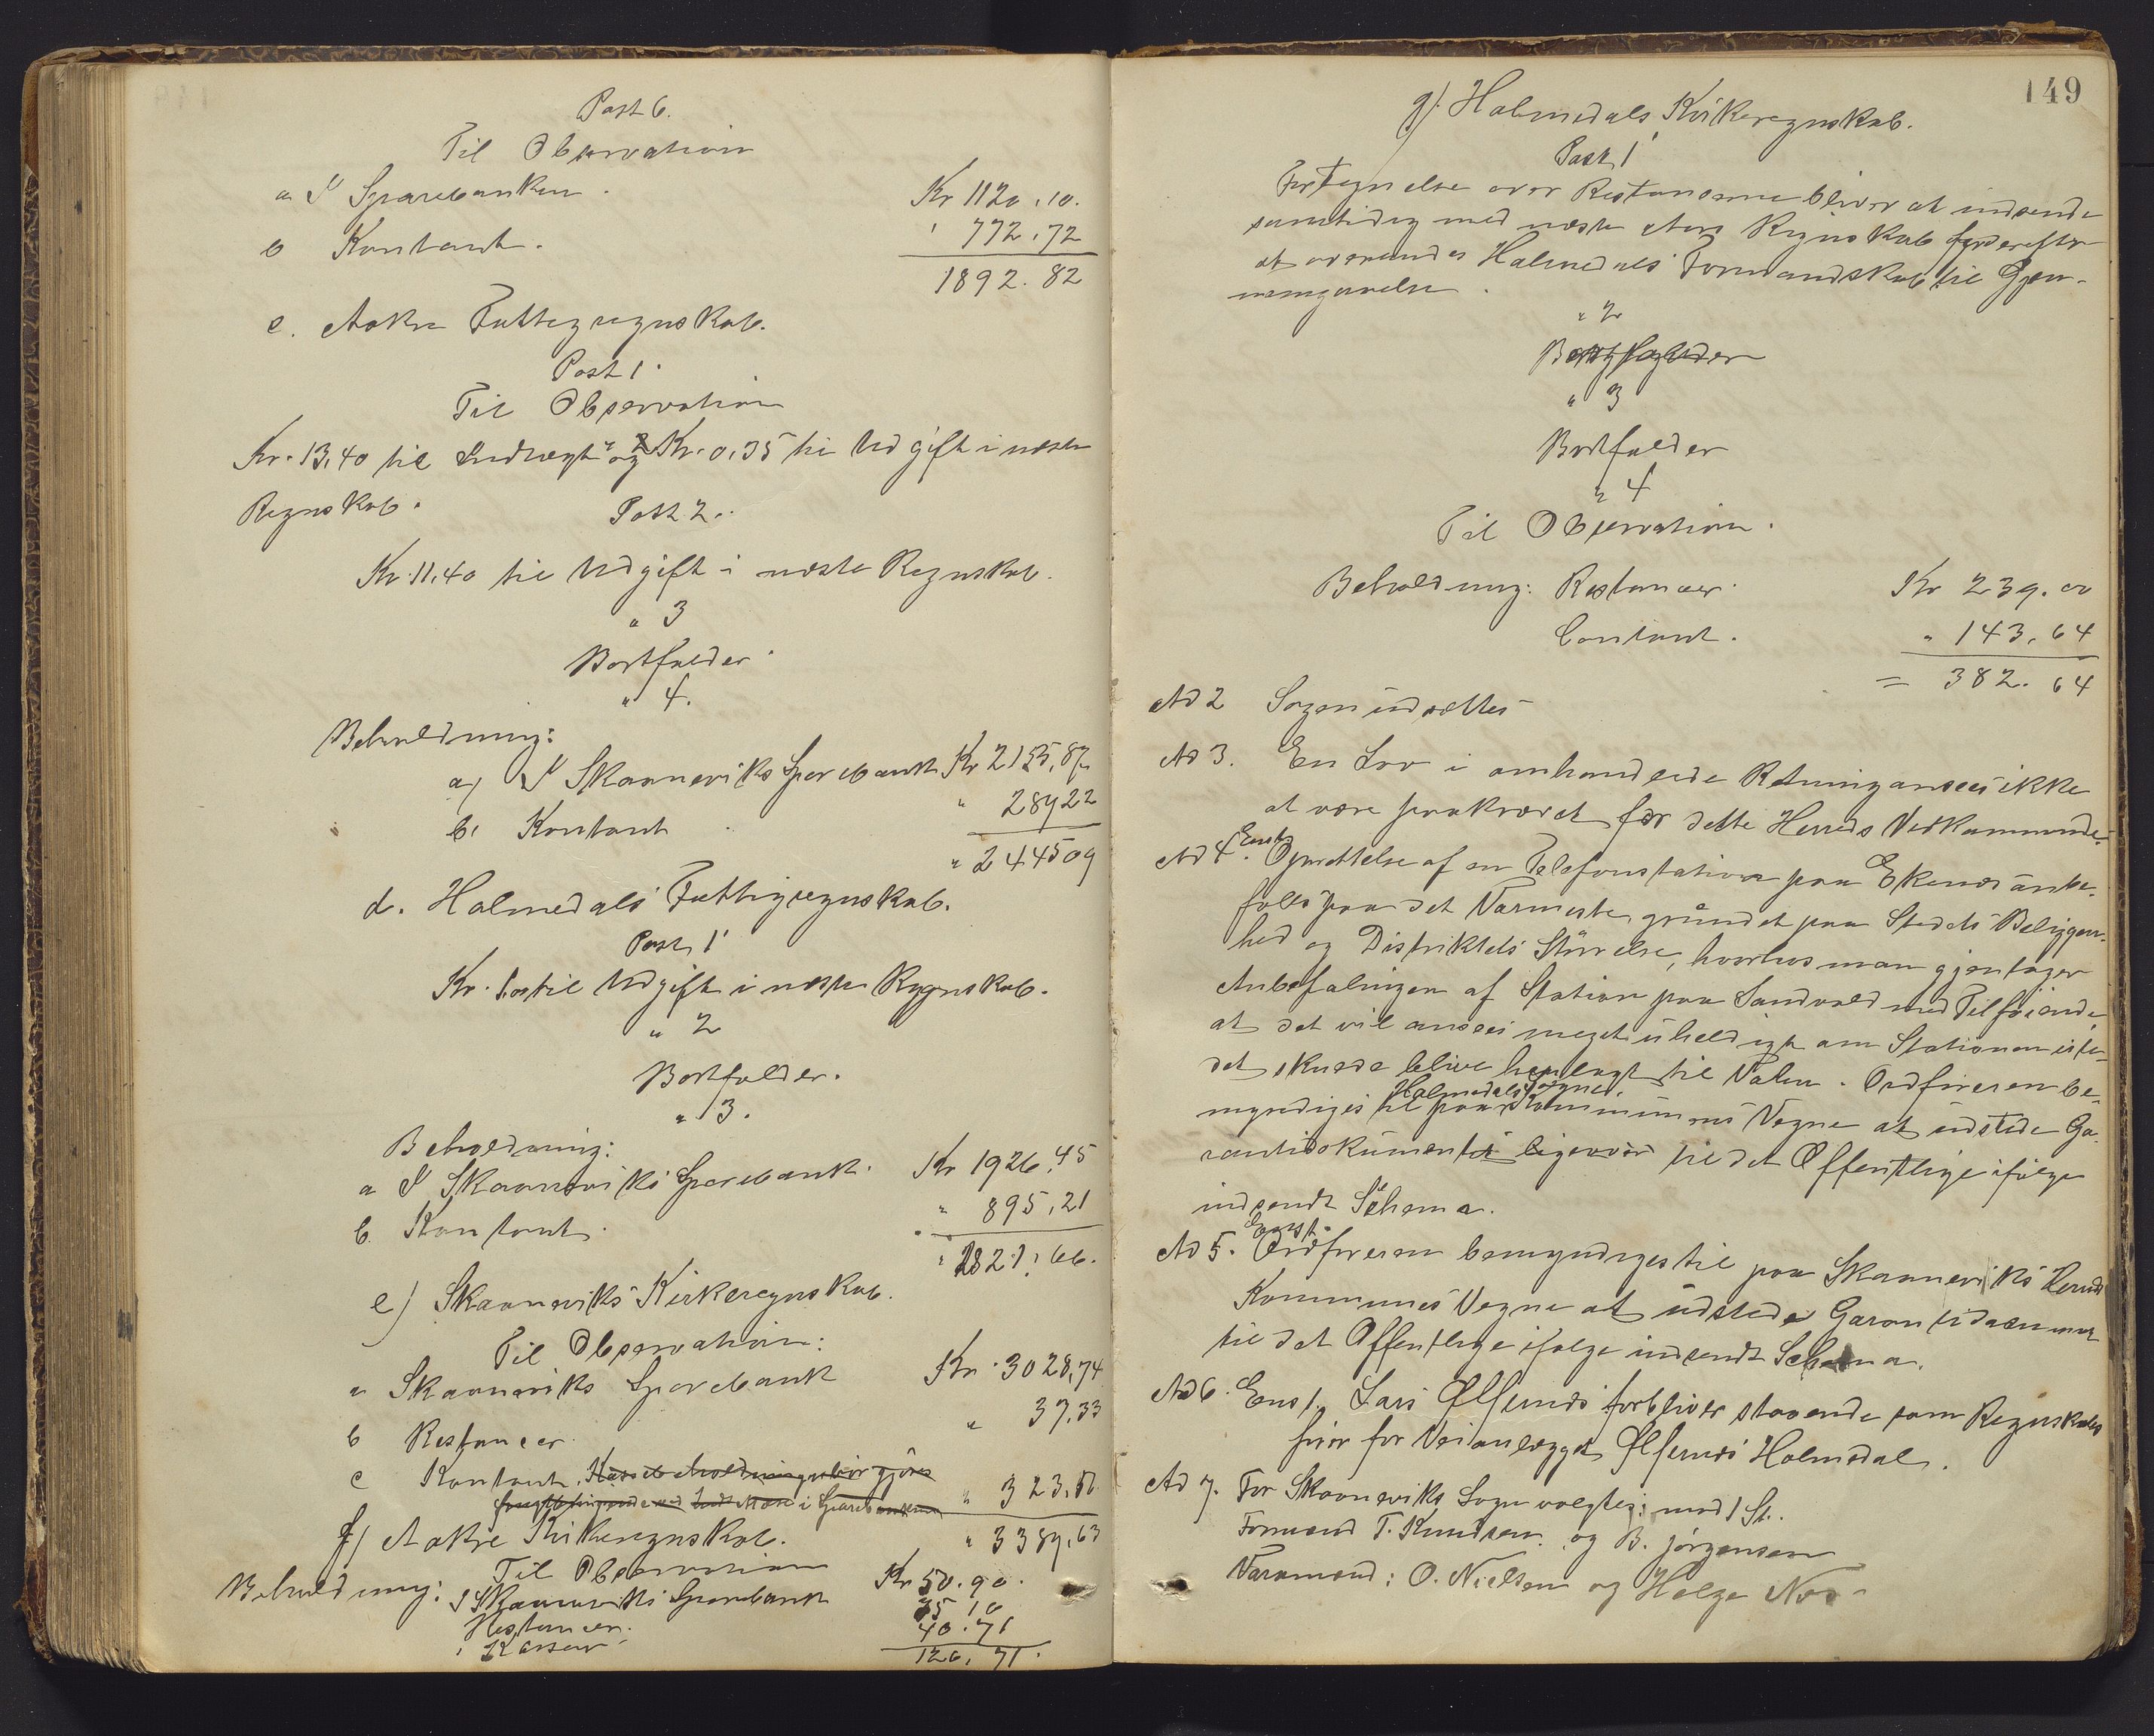 Post 6.
Til Observation
a I Sparebanken. Kr 1120,10.
b Kontant. " 772,72
1892.82
c. Aakre Fattigregnskab.
Post 1.
Til Observation
Kr. 13,40 til Indtægt og Kr. 0,35 til Udgift i næste
Regnskab.
Post 2.
Kr. 11,40 til Udgift i næste Regnskab.
" 3
Bortfalder.
" 4.
Beholdning:
a) I Skaaneviks Sparebank Kr 2155,87
b, Kontant " 28922
" 244509
d. Holmedals Fattigregnskab.
Post 1
til Udgift i næste Regnskab.
" 2
Bortfalder.
" 3.
Beholdning:
a I Skaaneviks Sparebank. Kr 1926,45
b. Kontant. " 895,21
" 2821,66.
e) Skaaneviks Kirkeregnskab.
Til Observation:
a Skaaneviks Sparebank Kr. 3028,74
b Restancer " 37,33
c Kontant. Kassebeholdningen bør gjøres
frugtbringende ved Indsættelse i Sparebanken " 323,
" 3389,63
f) Aakre Kirkeregnskab.
Til Observation
Beholdning: I Skaaneviks Sparebank Kr 50.90.
Restancer. 35.10
" Kassen. 40.71
126,71.
149
g) Holmedals Kirkeregnskab.
Post 1
Fortegnelse over Restancerne bliver at indsende
samtidig med næste Aars Regnskab for derefter
at oversendes Holmedals Formandskab til Gjen-
nemgaaelse.
" 2
Bortfalder
" 3
Bortfalder
" 4
Til Observation.
Beholdning: Restancer. Kr 239.00
Contant. " 143,64
= 382.64
Ad 2 Sagen udsættes
Ad 3. En Lov i omhandlede Retning ansees ikke
at være paakrævet for dette Herreds Vedkommende.
Ad 4. Enst. Oprettelse af en Telefonstation paa Ekenæs anbe-
fales paa det Varmeste grundet paa Stedets Beliggen-
hed og Distriktets Størrelse, hvorhos man gjentager
Anbefalingen af Station paa Sandvold med Tilføiende,
at det vil ansees meget uheldigt om Stationen iste-
det skulde blive henlagt til Valen. Ordføreren be-
Holmedals Sogns
myndiges til paa Kommunens Vegne at udstede Ga-
rantidokument ligeover til det Offentlige ifølge
indsendt Schema.
Ad 5. Enst. Ordføreren bemyndiges til paa Skaaneviks Herreds
Kommunes Vegne at udstede Garantidocument
til det Offentlige ifølge indsendt Schema.
Ad 6. Enst. Lars Ølfernes forbliver staaende som Regnskabs
fører for Veianlægget Ølfernes Holmedal.
Ad 7. For Skaaneviks Sogn valgtes: mod 1 St.
Formand T. Knudsen og B. Jørgensen
Varamænd: O. Nielsen og Helge Næs-